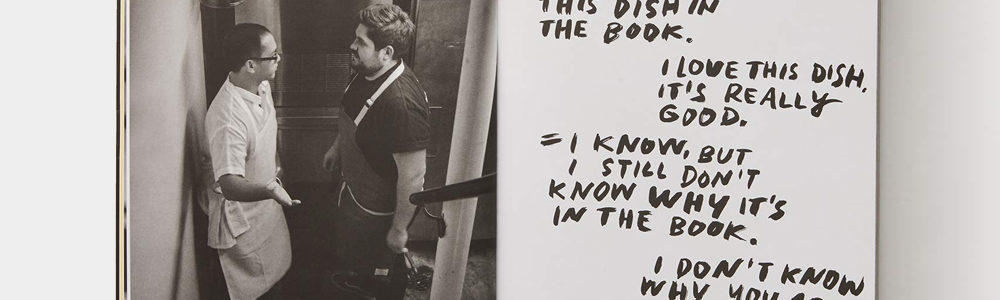 THIS DISH IN
THE BOOK.
I LOVE THIS DISH,
IT'S REALLY
GOOD.
= I KNOW, BUT
I STILL DON'T
KNOW WHY IT'S
IN THE BOOK.
I DON'T KNOW
WHY YOU